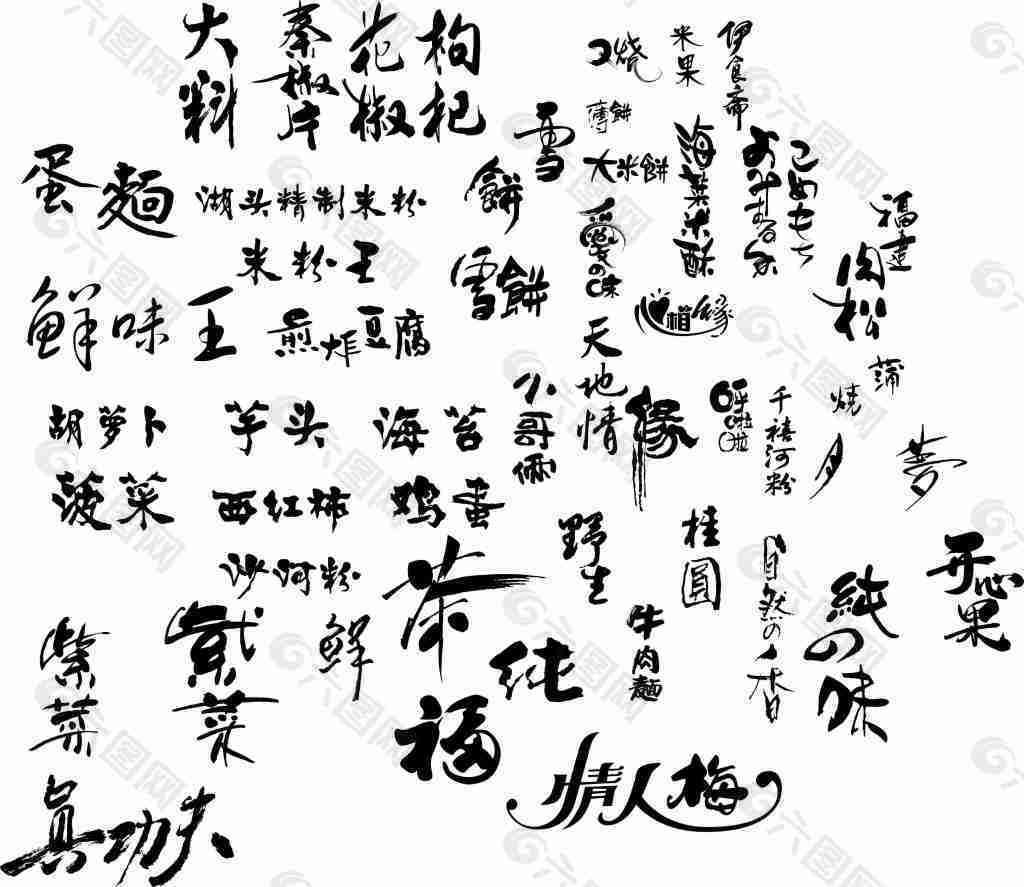 大料
秦椒片
花椒
枸杞
口烧
米果
伊食斋
薄餅
雪餅
大米餅
海菜米酥
こめもち
福建
肉松
蛋麵
湖头精制米粉
米粉王
雪餅
愛の味
相缘
鮮味王
煎炸豆腐
天地情
小哥俩
缘
呼啦啦
千禧河粉
燒
蒲
夕
夢
胡萝卜
芋头
海苔
菠菜
西红柿
鸡蛋
沙河粉
茶
野生
桂圓
自然の香
純の味
开心果
紫菜
紫菜
鮮
純
牛肉麵
福
真功夫
情人梅
六图网